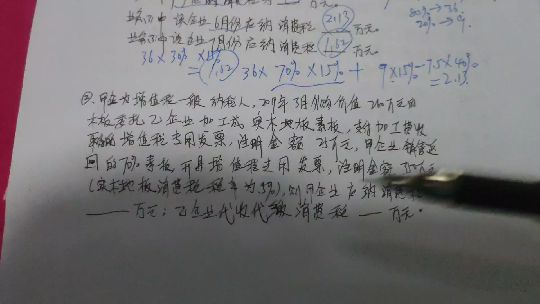 业务⑴中该企业6月份应纳消费税 2.13 万元。
业务⑴中该企业7月份应纳消费税 1.62 万元。
80%→36
20%→9
36×30%×15%
=1.62
36×70%×15%+9×15%-7.5×40%
=2.13
③.甲企业为增值税一般纳税人,2019年3月外购价值
木板委托乙企业加工成实木地板素板,支付加工费收
增值税专用发票,注明金额 万元,甲企业销售返
回的70%素板,开具增值税专用发票,注明金额350万元
(实木地板消费税税率为5%),则甲企业应纳消费税
万元;乙企业代收代缴消费税 万元。